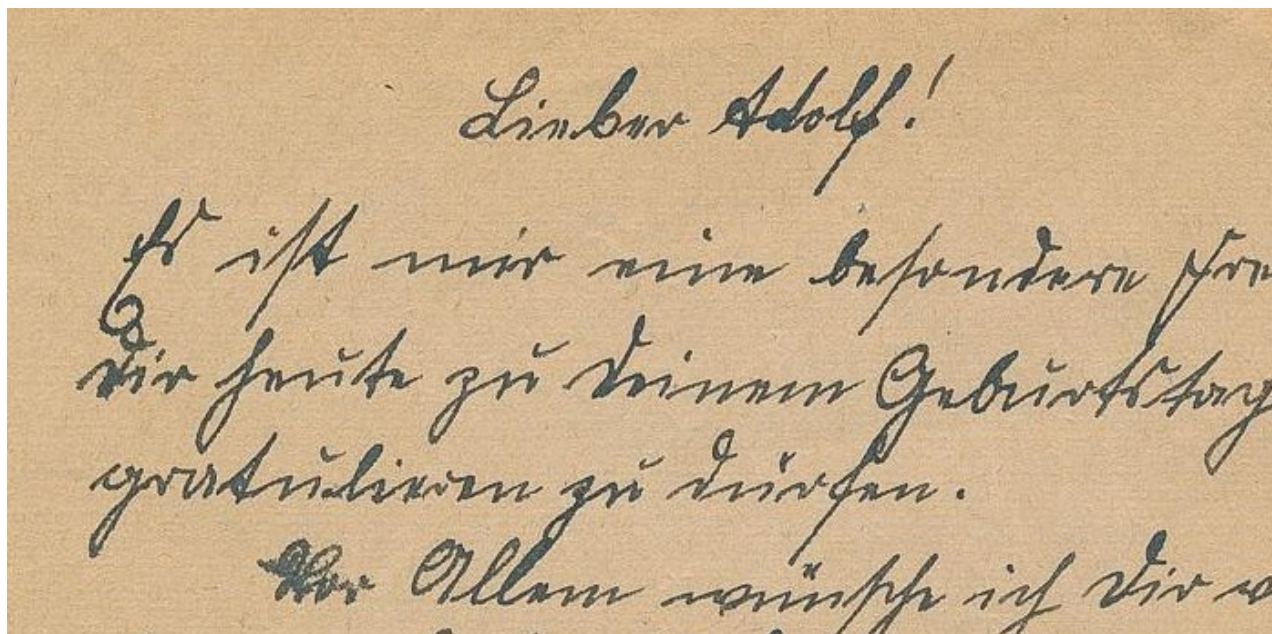 Lieber Adolf!
Es ist mir eine besondere Fre
Dir heute zu Deinem Geburtstag
gratulieren zu dürfen.
Vor Allem wünsche ich Dir